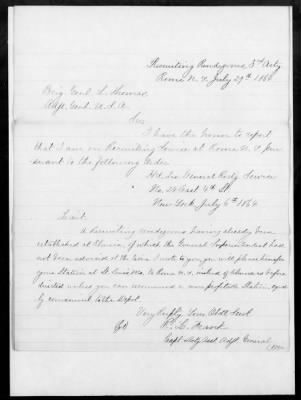 Recruiting Rendezvous, 5th Arty
Rome N.Y. July 29th 1864
Brig. Genl. L. Thomas
Adjt. Genl. U.S.A.
Sir
I have the honor to report
that I am on Recruiting Service at Rome N.Y. pur
suant to the following order
Hd. Qrs. General Rectg Service
No. 24 East 4th St
New York July 6th 1864
Lieut.
A Recruiting rendezvous having already been
established at Elmira, of which the General Superintendent had
not been advised at the time I wrote to you, you will please transfer
your Station at to Rome N.Y. instead of Elmira as before
directed unless you can recommend a more profitable Station, equal
ly convenient to the Depot.
Very Respy. Your Obdt. Servt.
Capt. Actg Asst. Adjt. General